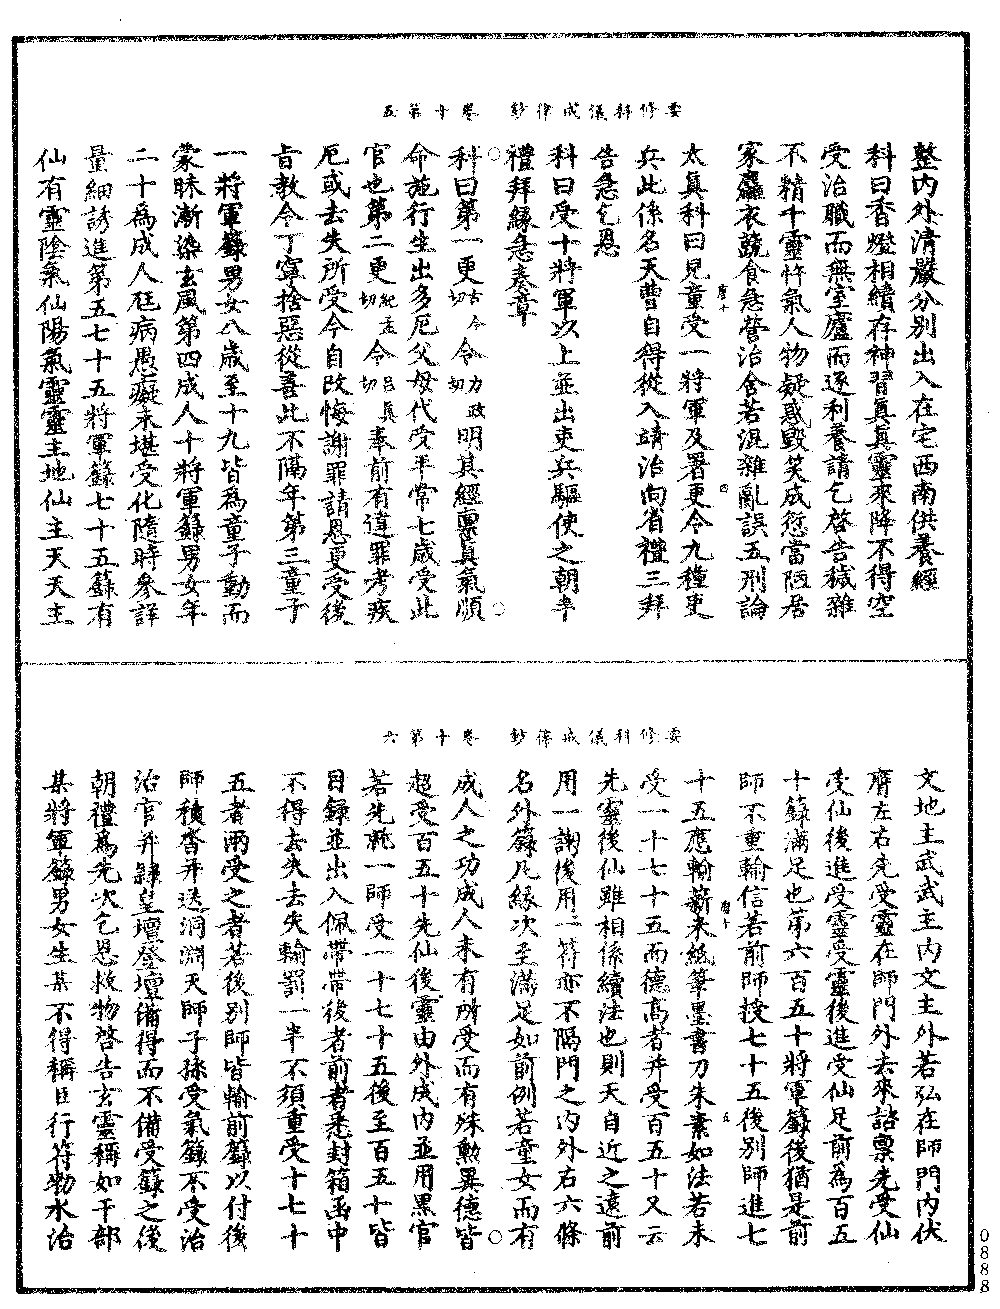 要修科儀戒律鈔　卷十第五
整內外清嚴分別出入在宅西南供養經
科曰香燈相續存神習真真靈來降不得空
受治職而無室廬而逐利養請乞啓告穢雜
不精十靈忤氣人物疑惑毀笑成愆當陋居
家麤衣蔬食急營治舍若混雜亂誤五刑論
太真科曰見童受一將軍及署更令九種吏
兵此係名天曹自得從入靖治向省禮三拜
告急乞恩
科曰受十將軍以上並出吏兵驅使之朝奉
禮拜緣急奏章
科曰第一更古今切令力政切明其經稟真氣順
命施行生出多厄父母代受平常七歲受此
官也第二更紀孟切令呂真切奉前有違罪考疾
厄或去失所受今自改悔謝罪請恩更受後
旨教令丁寧捨惡從善此不隔年第三童子
一將軍籙男女八歲至十九皆為童子動而
蒙昧漸染玄風第四成人十將軍籙男女年
二十為成人尫病愚癡未堪受化隨時參詳
量細誘進第五七十五將軍籙七十五籙有
仙有靈陰氣仙陽氣靈靈主地仙主天天主
要修科儀戒律鈔　卷十第六
文地主武武主內文主外若弘在師門內伏
膺左右先受靈在師門外去來諮稟先受仙
受仙後進受靈受靈後進受仙足前為百五
十籙滿足也第六百五十將軍籙後猶是前
師不重輸信若前師授七十五後別師進七
十五應輸薪米紙筆墨書刀朱素如法若未
受一十七十五而德高者并受百五十又云
先靈後仙雖相係續法也則天自近之遠前
用一調後用二符亦不隔門之內外右六條
名外籙凡緣次至滿足如前例若童女而有
成人之功成人未有所受而有殊勳異德皆
超受百五十先仙後靈由外成內並用黑官
若先詵一師受一十七十五後至百五十皆
目錄並出入佩帶帶後者前者悉封箱函中
不得去失去失輸罰一半不須重受十七十
五者兩受之者若後別師皆輸前籙以付後
師積沓并送洞淵天師子孫受氣籙不受治
治官并錄皇壇登壇備得而不備受籙之後
朝禮為先次乞恩救物啓告玄靈稱如干部
某將軍籙男女生某不得稱臣行符勑水治
0888